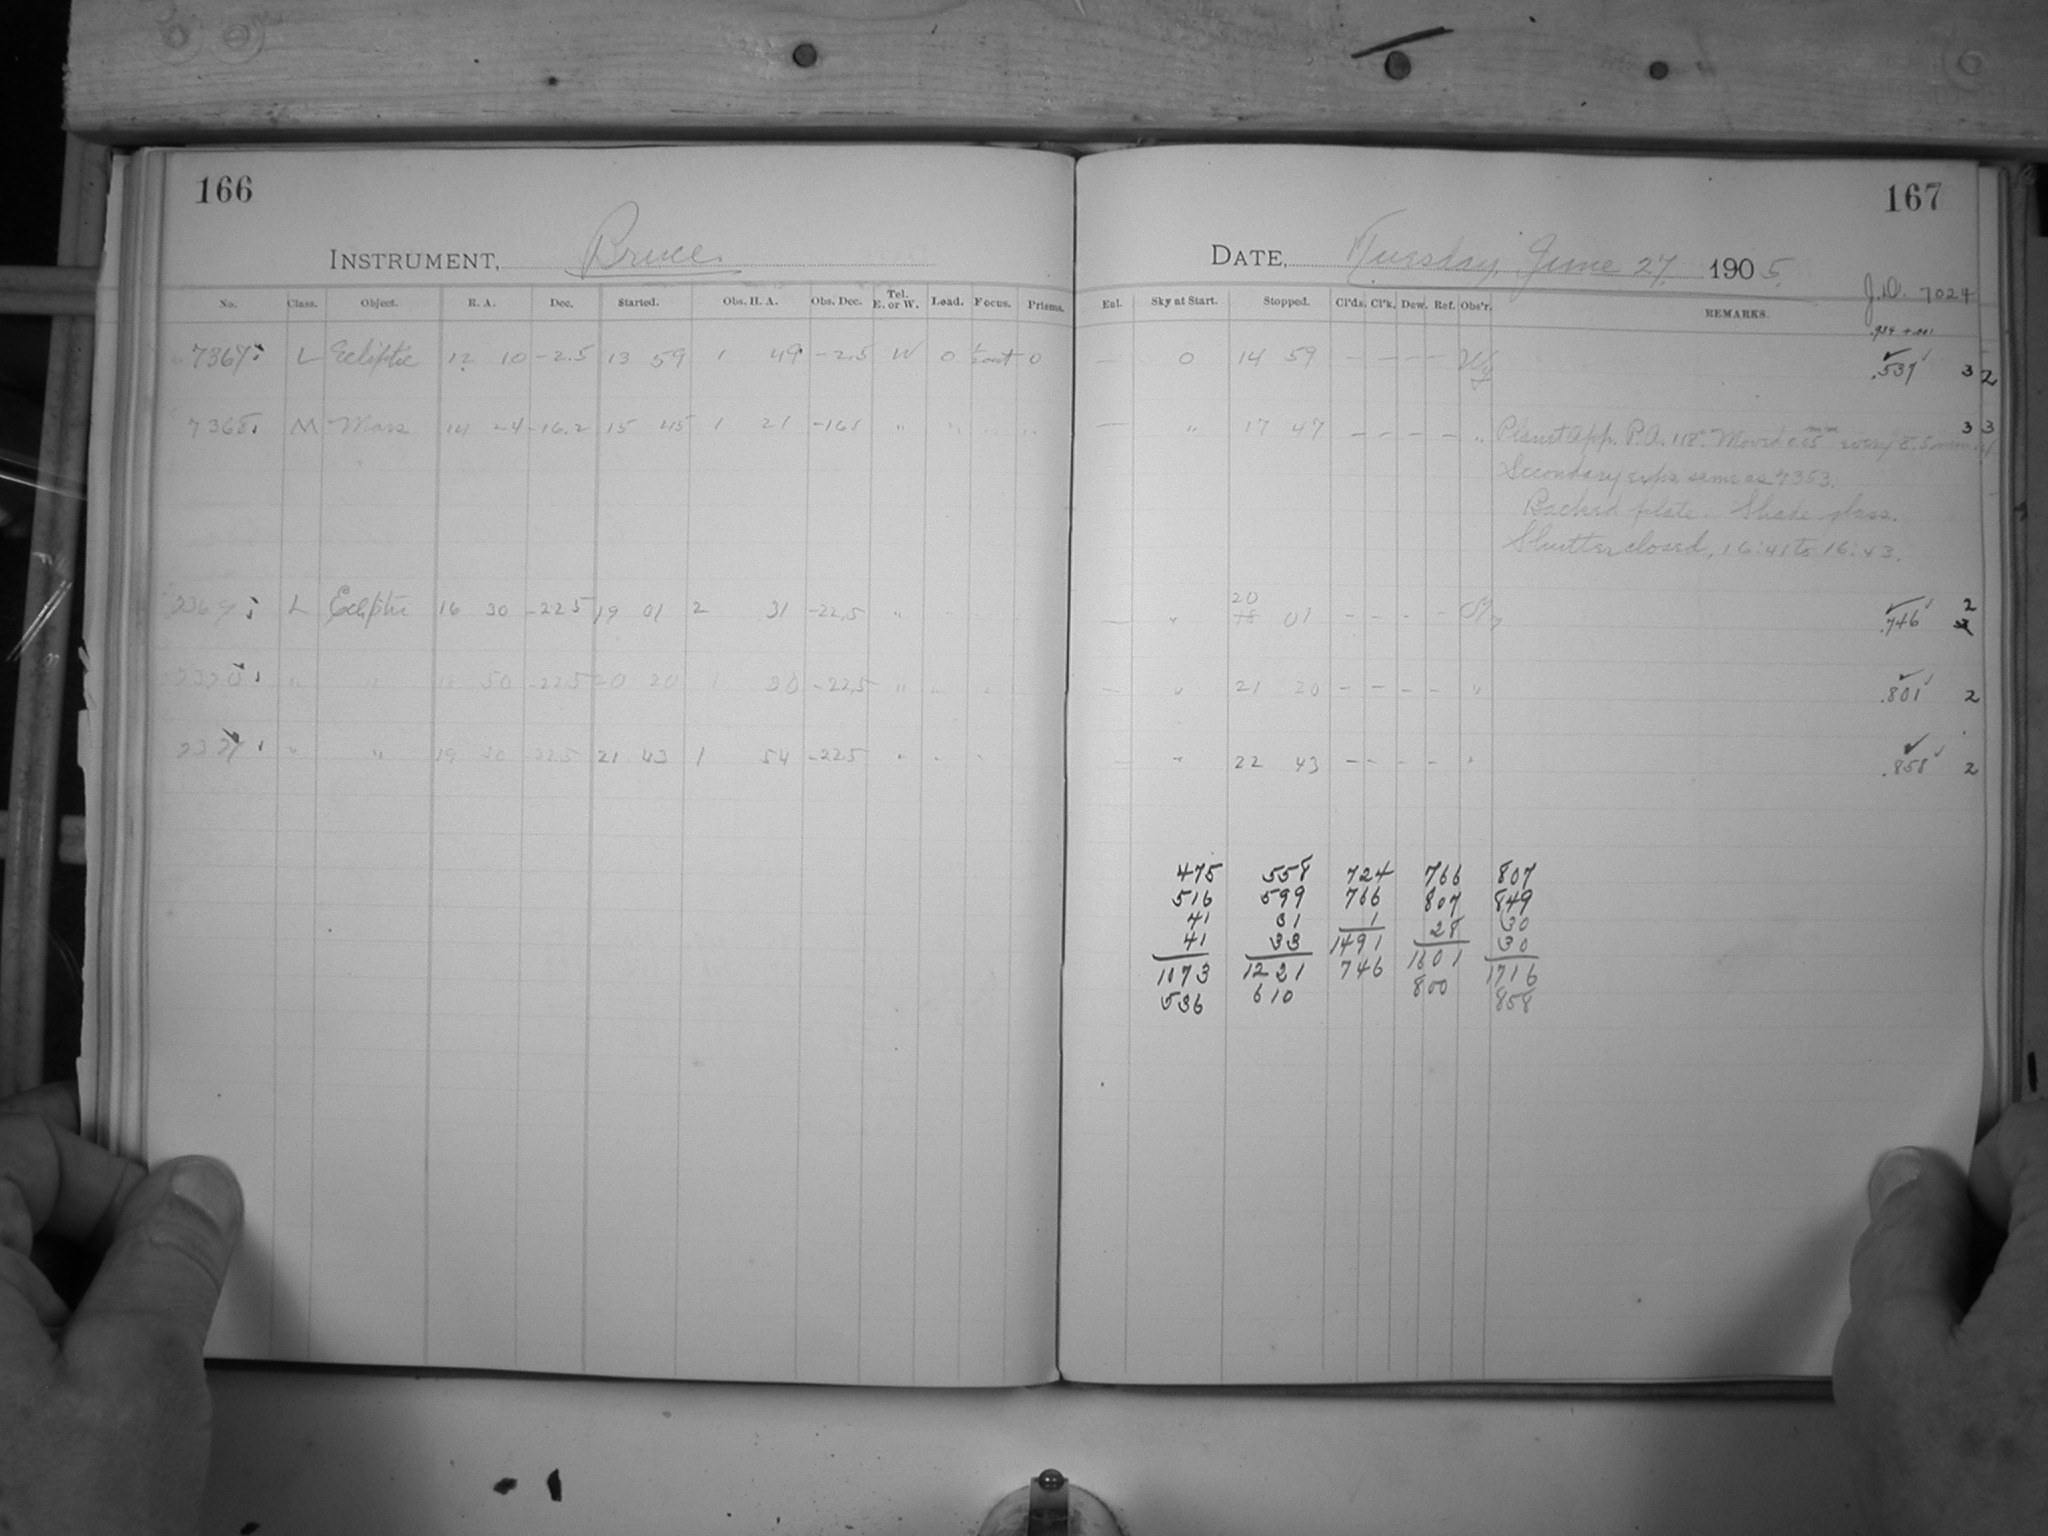 166
INSTRUMENT, Bruce.
No. Class. Object. R. A. Dec. Started. Obs. H. A. Obs. Dec. Tel. E. or W. Load. Focus. Prisms.
7367 L Ecliptic 12 10 -2.5 13 59 1 49 -2.5 W 0 0
7368 M Mars 14 24 -16.2 15 45 1 21 " " "
L Ecliptic 16 30 -22.5 19 01 2 31 -22.5 "
" " 50 -22.5 20 20 1 30 -22.5 " "
" " 19 -22.5 21 43 1 54 -22.5 " "
167
DATE, Tuesday, June 27. 1905.
J.D. 7024
Eul. Sky at Start. Stopped. Cl'ds. Cl'k. Dew. Ref. Obs'r. REMARKS.
— 0 14 59 — — — — .537 3 2
— " 17 47 — — — — " Planet app. P.A. 118°. Moved every 8.5 min. 3 3
Secondary exps same as 7363.
Backed plate. Shade glass.
Shutter closed, 16:41 to 16:43.
— " 20 01 – – – – .746 2
— " 21 20 – – – – " .801 2
— " 22 43 – – – – " .858 2
475 558 724 766 807
516 599 766 807 849
41 31 1 28 30
41 33 1491 1601 30
1073 1221 746 800 1716
536 610 858